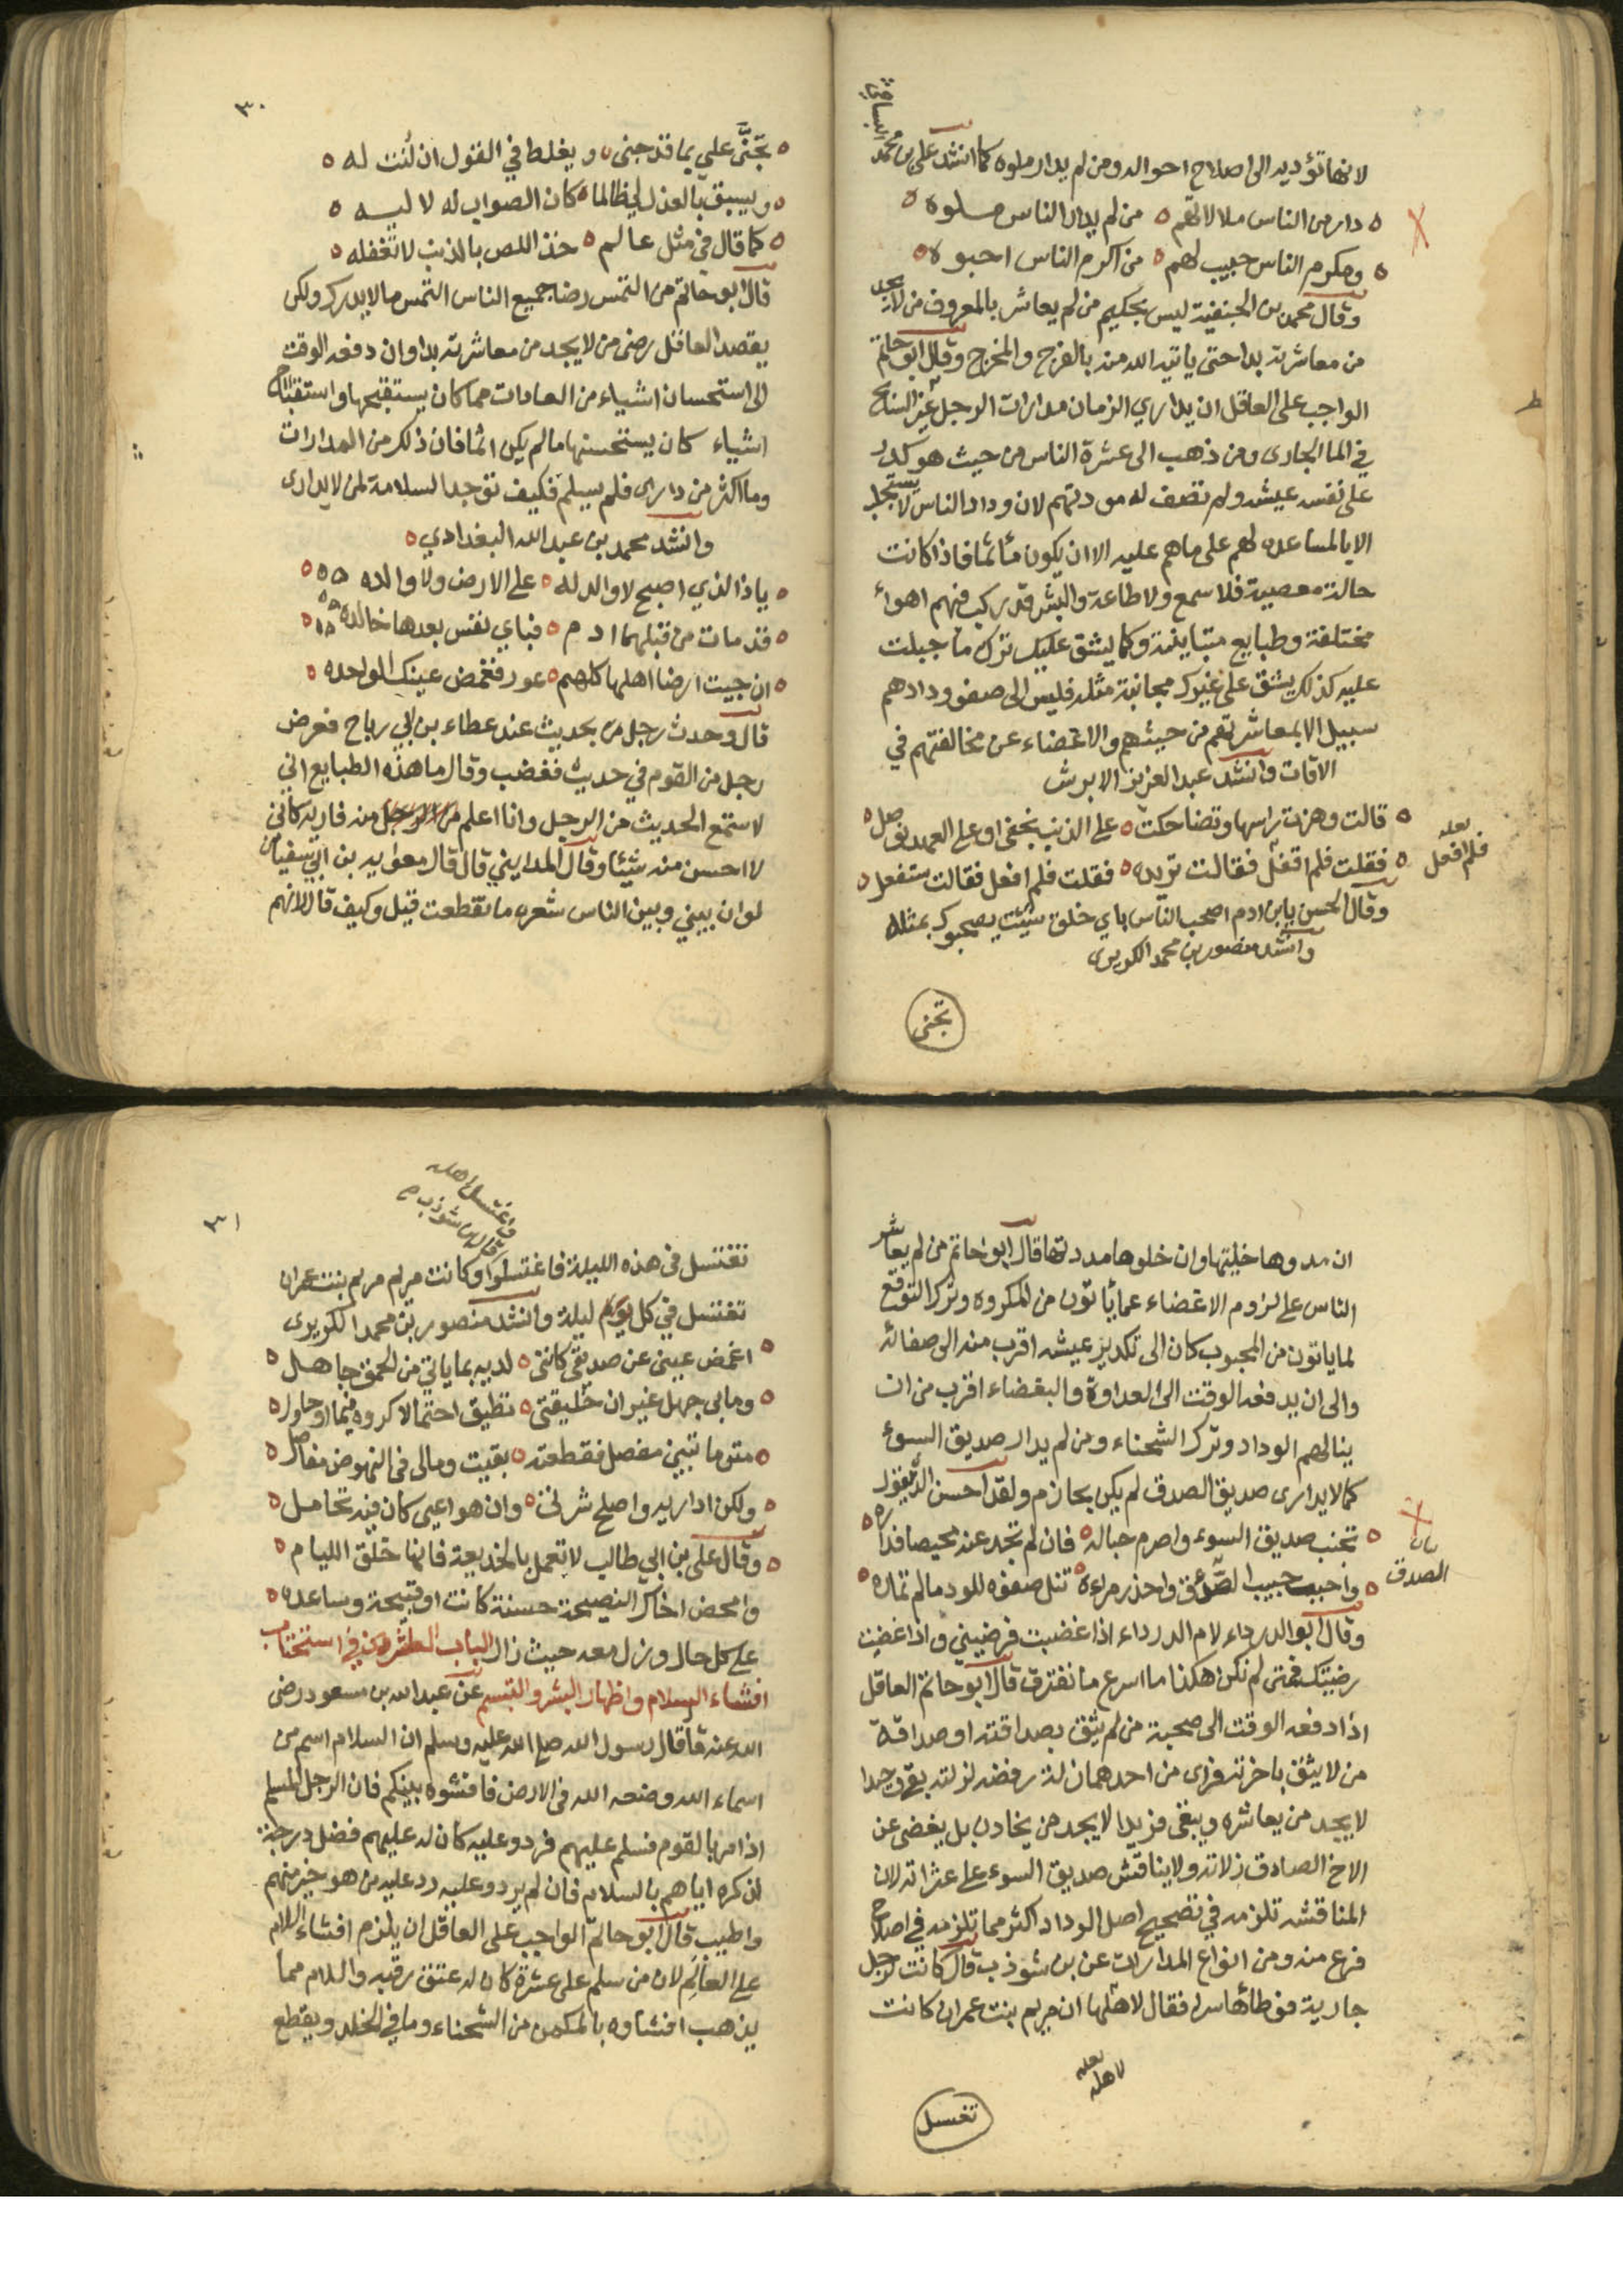 لانها تؤديه الى اصلاح احواله ومن لم يدار ملوه كما انشد علي بن محمد
البسامي
دار من الناس ملالاتهم من لم يدار الناس ملوه
ومكرم الناس حبيب لهم من اكرم الناس احبوه
وقال محمد بن الحنفية ليس بحكيم من لم يعاشر بالمعروف من لا يجد
من معاشرته بدا حتى ياتيه الله منه بالفرج والمخرج وقال ابو حاتم
الواجب على العاقل ان يداري الزمان مدارات الرجل السابح
في الما الجارى ومن ذهب الى عشرة الناس من حيث هو كدر
على نفسه عيشه ولم تصف له مودتهم لان وداد الناس لا يستجلب
الا بالمساعده لهم على ماهم عليه الا ان يكون مأثما فاذا كانت
حالة معصية فلا سمع ولا طاعة والبشر قد ركب فيهم اهواء
مختلفة وطبايع متباينة وكما يشق عليك ترك ما جبلت
عليه كذلك يشق على غيرك مجانبة مثله فليس الى صفو ودادهم
سبيل الا بمعاشرتهم من حيث هم والاغضاء عن مخالفتهم في
الاقات وانشد عبد العزيز الابرش
قالت وهزت راسها وتضاحكت على الذنب يخفى او على العهد توصل
فقلت فلم اقفل فقالت تريده فقلت فلم افعل فقالت ستفعل
لعله
فلم افعل
وقال الحسن يابن ادم اصحب الناس باي خلق شئت يصحبوك بمثله
وانشد منصور بن محمد الكريرى
تجنى
٣٠
تجنَّى علي بما قد جنى ويغلط في القول ان لنت له
ويسبق بالعذل لي ظالما كان الصواب له لا ليه
كما قال في مثل عالم خذ اللص بالذنب لا تغفله
قال ابو حاتم من التمس رضا جميع الناس التمس ما لا يدرك ولكن
يقصد العاقل رضى من لا يجد من معاشرته بدا وان دفعه الوقت
الى استحسان اشياء من العادات مما كان يستقبحها واستقباح
اشياء كان يستحسنها مالم يكن اثما فان ذلك من المدارات
وما اكثر من دارى فلم يسلم فكيف توجد السلامة لمن لا يدارى
وانشد محمد بن عبد الله البغدادي
ياذا الذي اصبح لا والد له على الارض ولا والده
قد مات من قبلهما ادم فباي نفس بعدها خالده
ان جيت ارضا اهلها كلهم عور فغمض عينك الواحده
قال وحدث رجل من بحديث عند عطاء بن ابي رباح فعرض
رجل من القوم في حديثه فغضب وقال ما هذه الطبايع اني
لاستمع الحديث من الرجل وانا اعلم منه فاريه كاني
لا احسن منه شيئا وقال المدايني قال قال معوايه بن ابي سفيان
لو ان بيني وبين الناس شعره ما تقطعت قيل وكيف قال لانهم
ان مدوها خليتها وان خلوها مددتها قال ابو حاتم من لم يعاشر
الناس على لزوم الاغضاء عما يأتون من المكروه وترك التوقع
لما ياتون من المحبوب كان الى تكدير عيشه اقرب منه الى صفائه
والى ان يدفعه الوقت الى العداوة والبغضاء اقرب من ان
ينالهم الوداد وترك الشحناء ومن لم يدار صديق السوء
كما لا يدارى صديق الصدق لم يكن بحازم ولقد احسن الذي يقول
تجنب صديق السوء واصرم حباله فان لم تجد عنه محيصا فداره
واحبب حبيب الصدق واحذر مراءه تنل صفوه للود مالم تماره
الصدق
وقال ابو الدرداء لام الدرداء اذا غضبت فرضيني واذا غضبت
رضيتك فمتى لم نكن هكذا ما اسرع ما نفترق قال ابو حاتم العاقل
اذا دفعه الوقت الى صحبة من لم يثق بصداقته او صداقة
من لا يثق باخوته فراى من احدهما زلة رفضه لزلته بقي وحيدا
لا يجد من يعاشره ويبقى فريدا لا يجد من يخادن بل يغضى عن
الاخ الصادق زلاته ولا يناقش صديق السوء على عثراته لان
المناقشه تلزمه في تصحيح اصل الوداد اكثر مما تلزمه في اصلاح
فرعه منه ومن انواع المدارات عن بن شوذب قال كانت لرجل
جارية فوطأها سرا فقال لاهلها ان مريم بنت عمران كانت
لعله
لاهله
تغتسل
٣١
فاغتسل اهله
قاله بن شوذب
تغتسل في هذه الليلة فاغتسلوا وكانت مريم مريم بنت عمران
تغتسل في كل ليلة وانشد منصور بن محمد الكريرى
اغمض عيني عن صديقي كانني لديه بما ياتي من الحمق جاهل
وما بي جهل غير ان خليقتي تطيق احتمالا كروه فيما احاول
متى ما تبين مفصل فقطعته بقيت ومالى في النهوض مفاصل
ولكن اداريه واصلح شرتى وان هو اعيى كان فيه تحامل
وقال على بن ابي طالب لا تعمل بالخديعة فانها خلق الليام
وامحض اخاك النصيحة حسنة كانت او قبيحة وساعده
على كل حال وزل معه حيث زال الباب العاشر في استحباب
افشاء السلام واظهار البشر والتبسم عن عبد الله بن مسعود رضى
الله عنه قال رسول الله صلى الله عليه وسلم ان السلام اسم من
اسماء الله وضعه الله في الارض فافشوه بينكم فان الرجل المسلم
اذا مر بالقوم فسلم عليهم فردو عليه كان له عليهم فضل درجة
لذكره اياهم بالسلام فان لم يردو عليه رد عليه من هو خير منهم
واطيب قال ابو حاتم الواجب على العاقل ان يلزم افشاء السلام
على العالم لان من سلم على عشرة كان له عتق رقبه والسلام مما
يذهب افشاوه بالمكمن من الشحناء وما في الخلد ويقطع